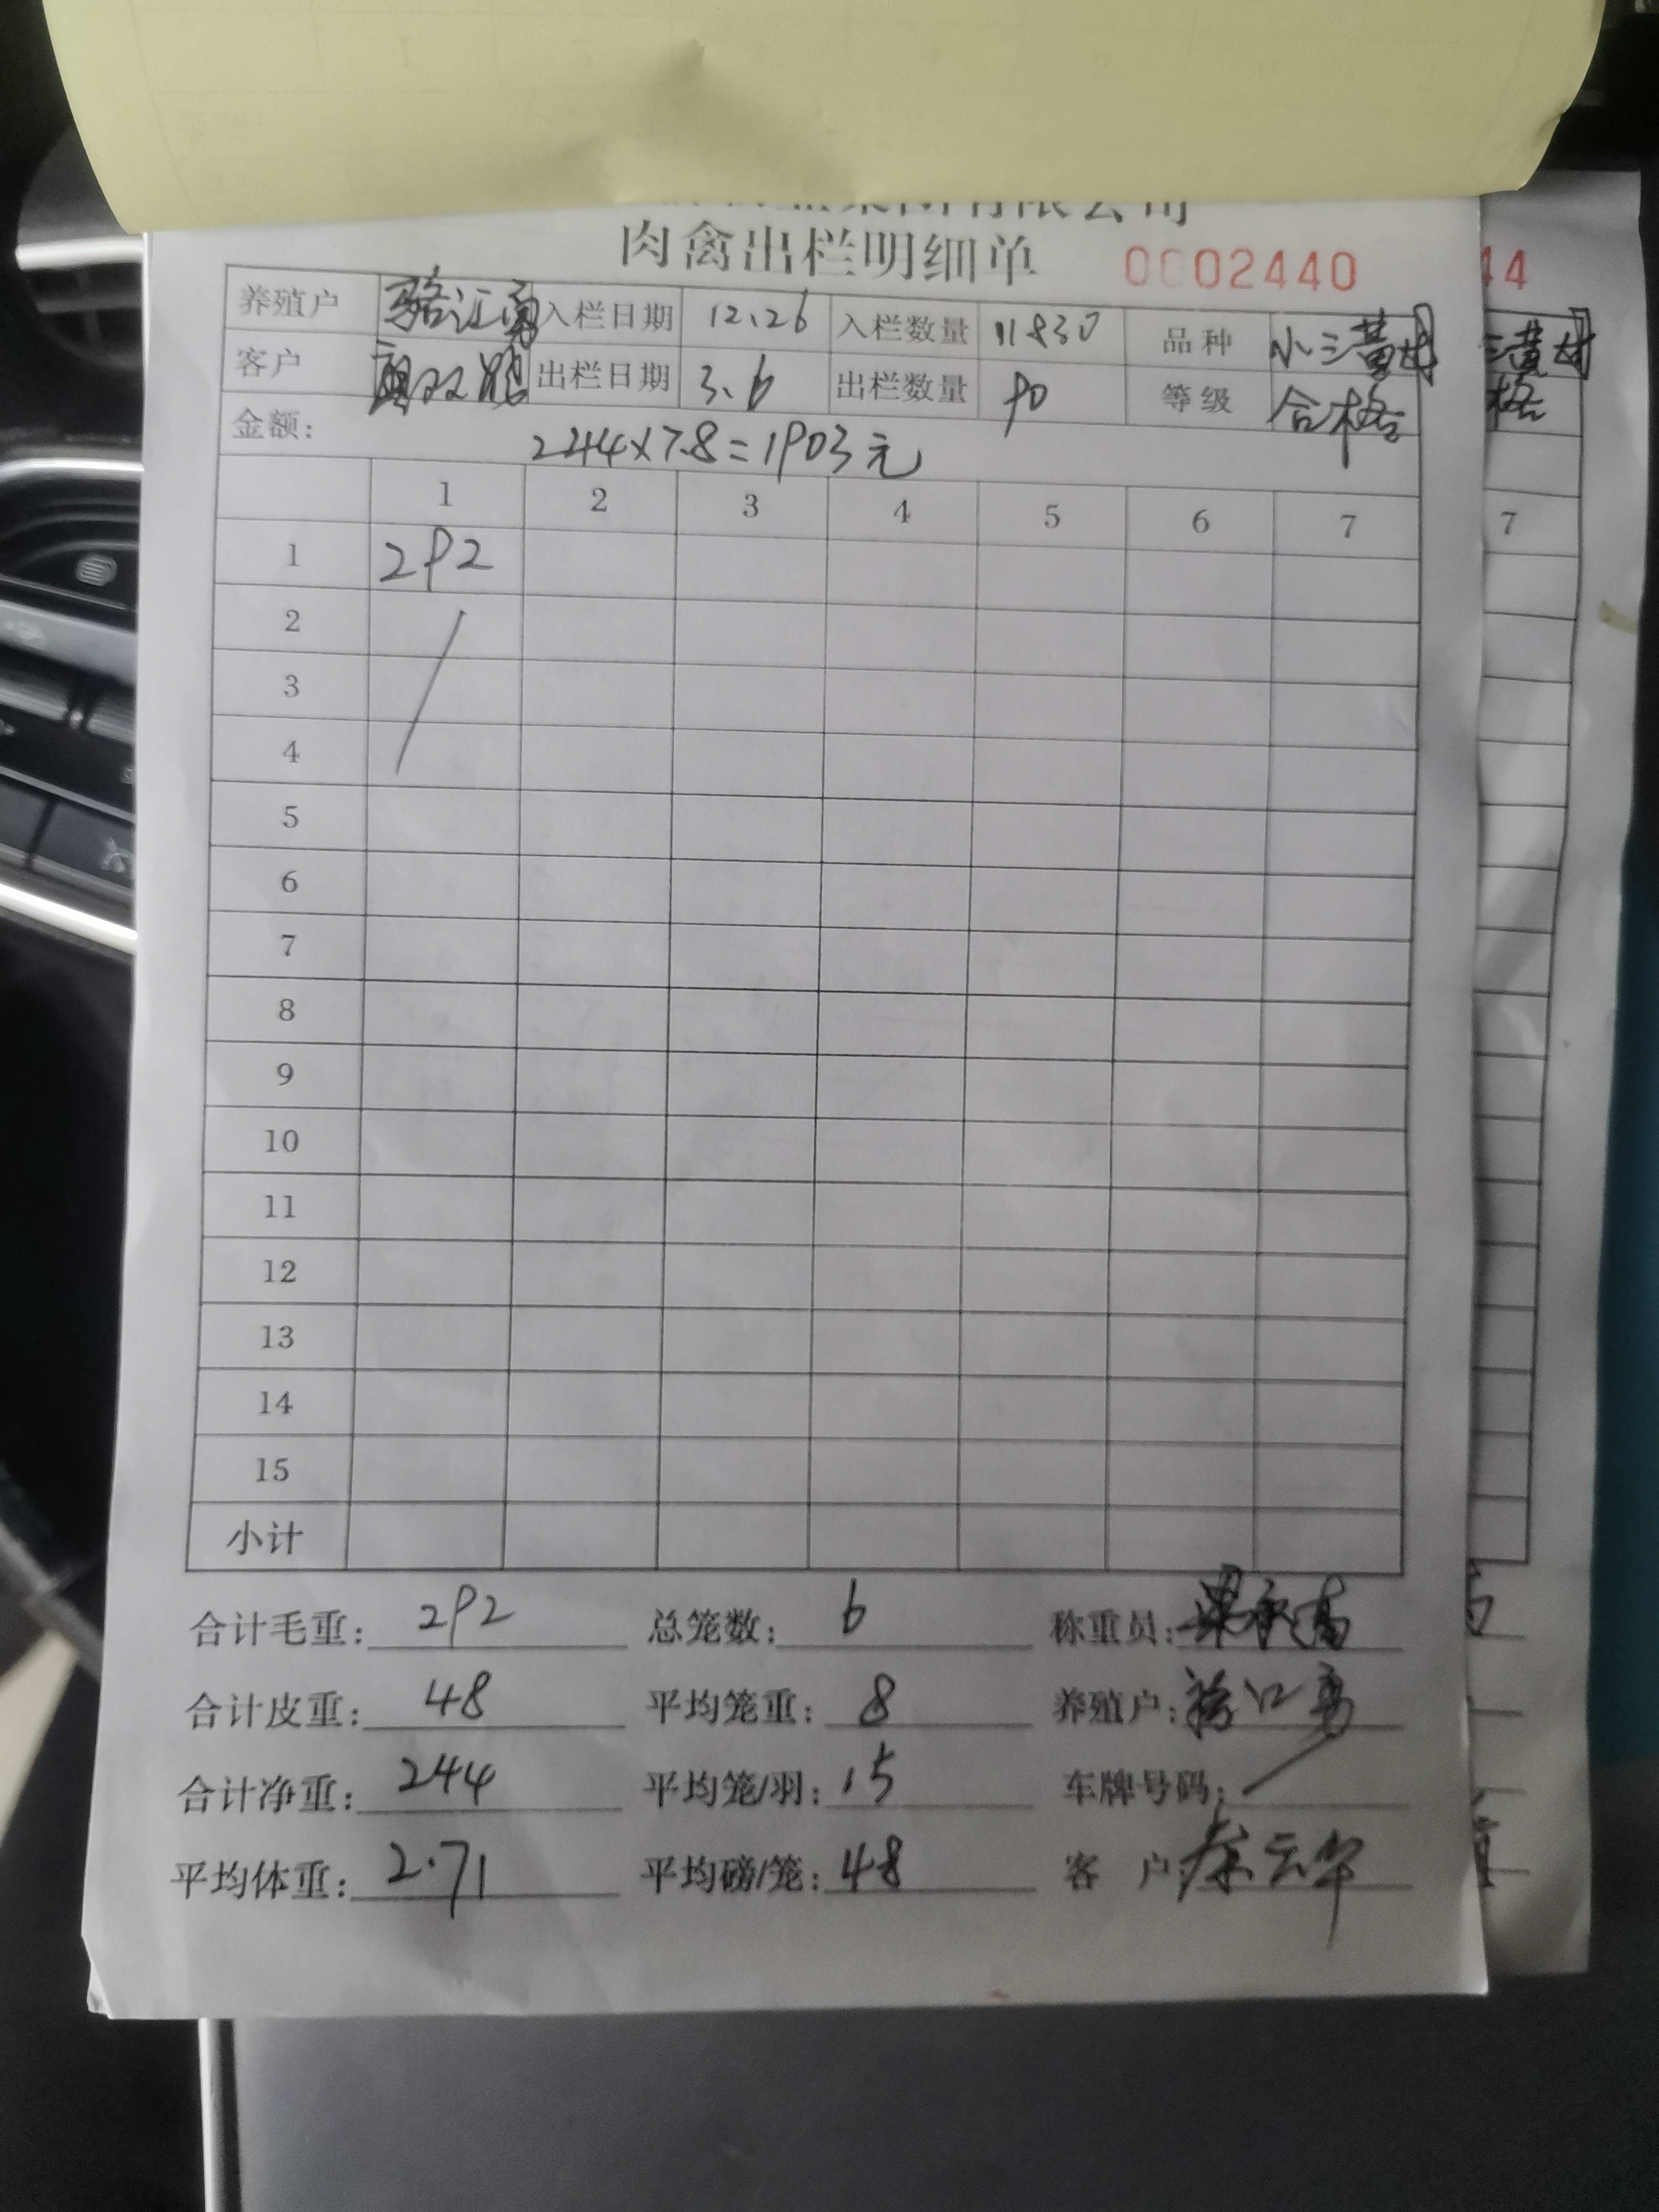 集团有限公司
肉禽出栏明细单 0002440 44
养殖户 骆江勇 入栏日期 12.26 入栏数量 11830 品种 小三黄母 三黄母
客户 出栏日期 3.6 出栏数量 90 等级 合格 格
金额: 244×7.8=1903元
1 2 3 4 5 6 7 7
1 292
2
3
4
5
6
7
8
9
10
11
12
13
14
15
小计
合计毛重: 292 总笼数: 6 称重员:
合计皮重: 48 平均笼重: 8 养殖户: 骆江勇
合计净重: 244 平均笼/羽: 15 车牌号码:
平均体重: 2.71 平均磅/笼: 48 客 户: 秦云华